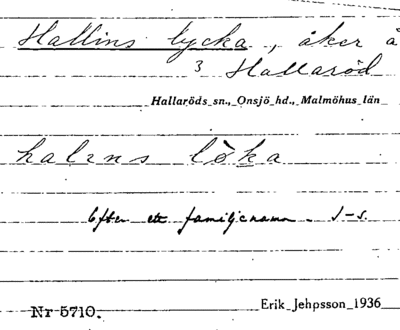 Hallins lycka, åker å
3 Hallaröd
Hallaröds sn., Onsjö hd., Malmöhus län
halens lòka
Efter ett familjenamn. J-s.
Nr 5710.
Erik Jehpsson 1936